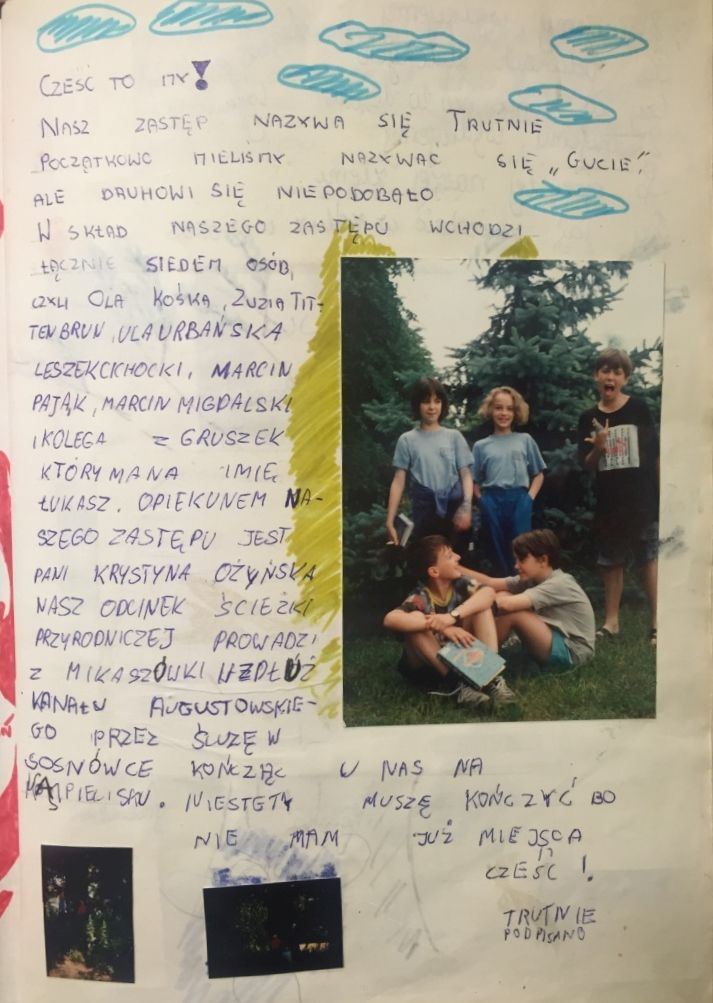 CZESC TO MY!
NASZ ZASTĘP NAZYWA SIĘ TRUTNIE
POCZĄTKOWO MIELIŚMY NAZYWAĆ SIĘ „GUCIE",
ALE DRUHOWI SIĘ NIEPODOBAŁO
W SKŁAD NASZEGO ZASTĘPU WCHODZI
ŁĄCZNIE SIEDEM OSÓB,
CZYLI OLA KOŚKA, ZUZIA TIT-
TENBRUN, ULA URBAŃSKA
LESZEK CICHOCKI, MARCIN
PAJĄK, MARCIN MIGDALSKI
I KOLEGA Z GRUSZEK
KTÓRY MA NA IMIĘ
ŁUKASZ. OPIEKUNEM NA-
SZEGO ZASTĘPU JEST
PANI KRYSTYNA OŻYŃSKA
NASZ ODCINEK ŚCIEŻKI
PRZYRODNICZEJ PROWADZI
Z MIKASZÓWKI WZDŁUŻ
KANAŁU AUGUSTOWSKIE-
GO PRZEZ ŚLUZĘ W
SOSNÓWCE KOŃCZĄC U NAS NA
KĄPIELISKU. NIESTETY MUSZĘ KOŃCZYĆ BO
NIE MAM JUŻ MIEJSCA
CZEŚĆ!
TRUTNIE
PODPISANO